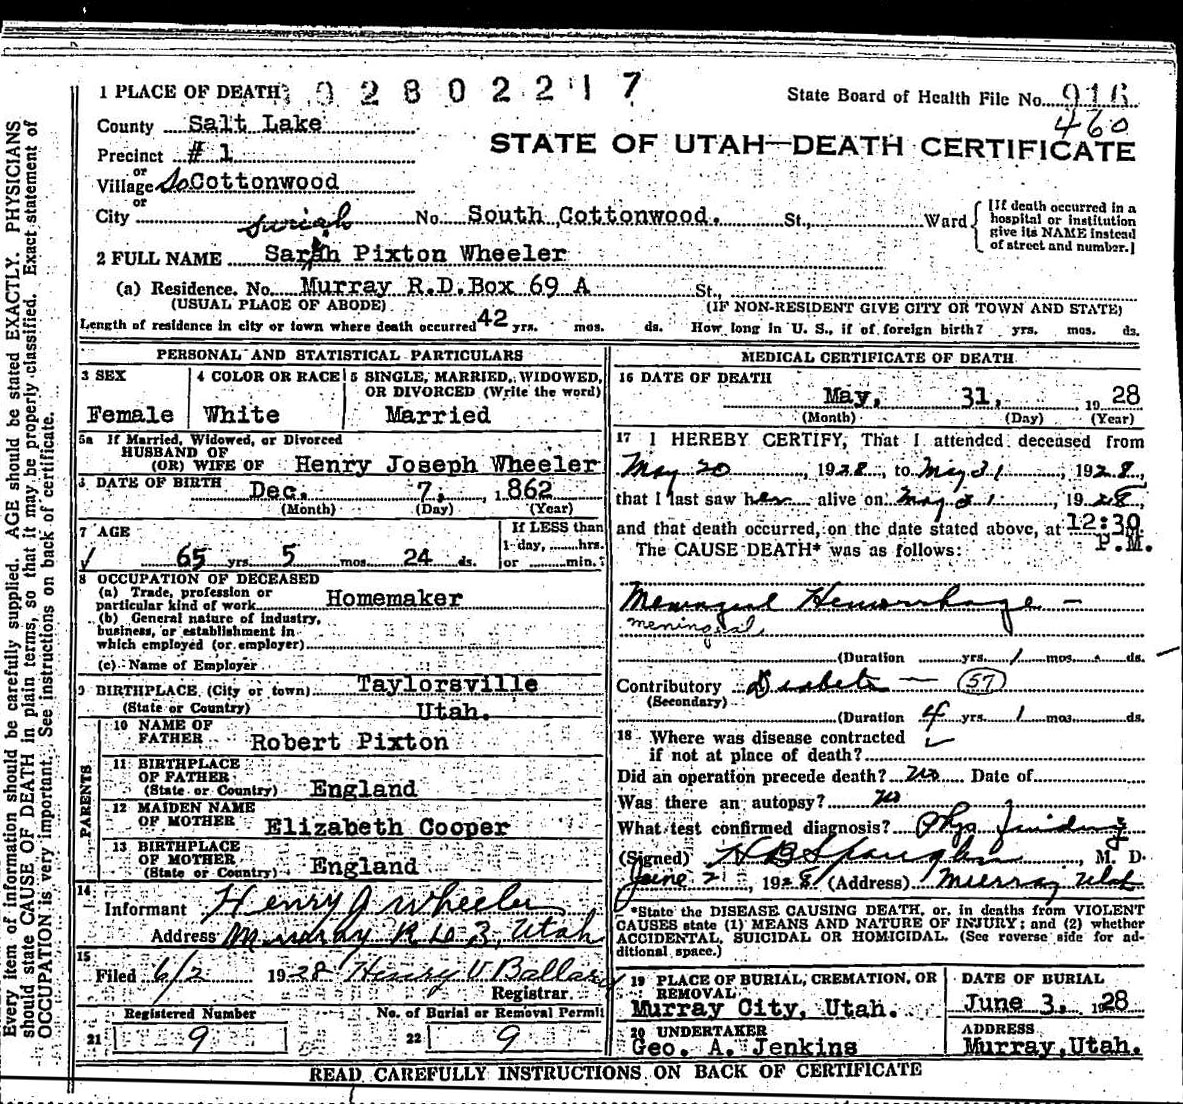 1 PLACE OF DEATH 02802217 State Board of Health File No. 916
460
County Salt Lake
STATE OF UTAH—DEATH CERTIFICATE
Precinct # 1
or
Village So Cottonwood
or
City No. South Cottonwood. St., Ward
[If death occurred in a
hospital or institution
give its NAME instead
of street and number.]
2 FULL NAME Sarah Pixton Wheeler
(a) Residence. No. Murray R.D.Box 69 A St.,
(USUAL PLACE OF ABODE) (IF NON-RESIDENT GIVE CITY OR TOWN AND STATE)
Length of residence in city or town where death occurred 42 yrs. mos. ds. How long in U. S., if of foreign birth? yrs. mos. ds.
PERSONAL AND STATISTICAL PARTICULARS
3 SEX 4 COLOR OR RACE 5 SINGLE, MARRIED, WIDOWED,
OR DIVORCED (Write the word)
Female White Married
5a If Married, Widowed, or Divorced
HUSBAND OF
(OR) WIFE OF Henry Joseph Wheeler
6 DATE OF BIRTH Dec. 7, 1862
(Month) (Day) (Year)
7 AGE If LESS than
1 day, hrs.
65 yrs. 5 mos. 24 ds. or min.
8 OCCUPATION OF DECEASED
(a) Trade, profession or
particular kind of work Homemaker
(b) General nature of industry,
business, or establishment in
which employed (or employer)
(c) Name of Employer
9 BIRTHPLACE (City or town) Taylorsville
(State or Country) Utah.
PARENTS
10 NAME OF
FATHER Robert Pixton
11 BIRTHPLACE
OF FATHER
(State or Country) England
12 MAIDEN NAME
OF MOTHER Elizabeth Cooper
13 BIRTHPLACE
OF MOTHER
(State or Country) England
14
Informant Henry J Wheeler
Address Murray R D 3, Utah
15
Filed 6/2 1928 Henry V Ballard
Registrar
Registered Number No. of Burial or Removal Permit
21 9 22 9
MEDICAL CERTIFICATE OF DEATH
16 DATE OF DEATH
May, 31, 1928
(Month) (Day) (Year)
17 I HEREBY CERTIFY, That I attended deceased from
May 20, 1928, to May 31, 1928,
that I last saw her alive on May 31, 1928,
and that death occurred, on the date stated above, at 12:30
P.M.
The CAUSE DEATH* was as follows:
Meningeal Hemorrhage —
meningeal
(Duration yrs. 1 mos. ds.
Contributory Diabetes — 57
(Secondary)
(Duration 4 yrs. 1 mos. ds.
18 Where was disease contracted
if not at place of death?
Did an operation precede death? no Date of
Was there an autopsy? no
What test confirmed diagnosis? Phys findings
(Signed) M. D.
June 2, 1928 (Address) Murray Utah
*State the DISEASE CAUSING DEATH, or, in deaths from VIOLENT
CAUSES state (1) MEANS AND NATURE OF INJURY; and (2) whether
ACCIDENTAL, SUICIDAL OR HOMICIDAL. (See reverse side for ad-
ditional space.)
19 PLACE OF BURIAL, CREMATION, OR
REMOVAL
Murray City, Utah.
DATE OF BURIAL
June 3, 1928
20 UNDERTAKER
Geo. A. Jenkins
ADDRESS
Murray, Utah.
READ CAREFULLY INSTRUCTIONS ON BACK OF CERTIFICATE
Every item of information should be carefully supplied. AGE should be stated EXACTLY. PHYSICIANS
should state CAUSE OF DEATH in plain terms, so that it may be properly classified. Exact statement of
OCCUPATION is very important. See instructions on back of certificate.